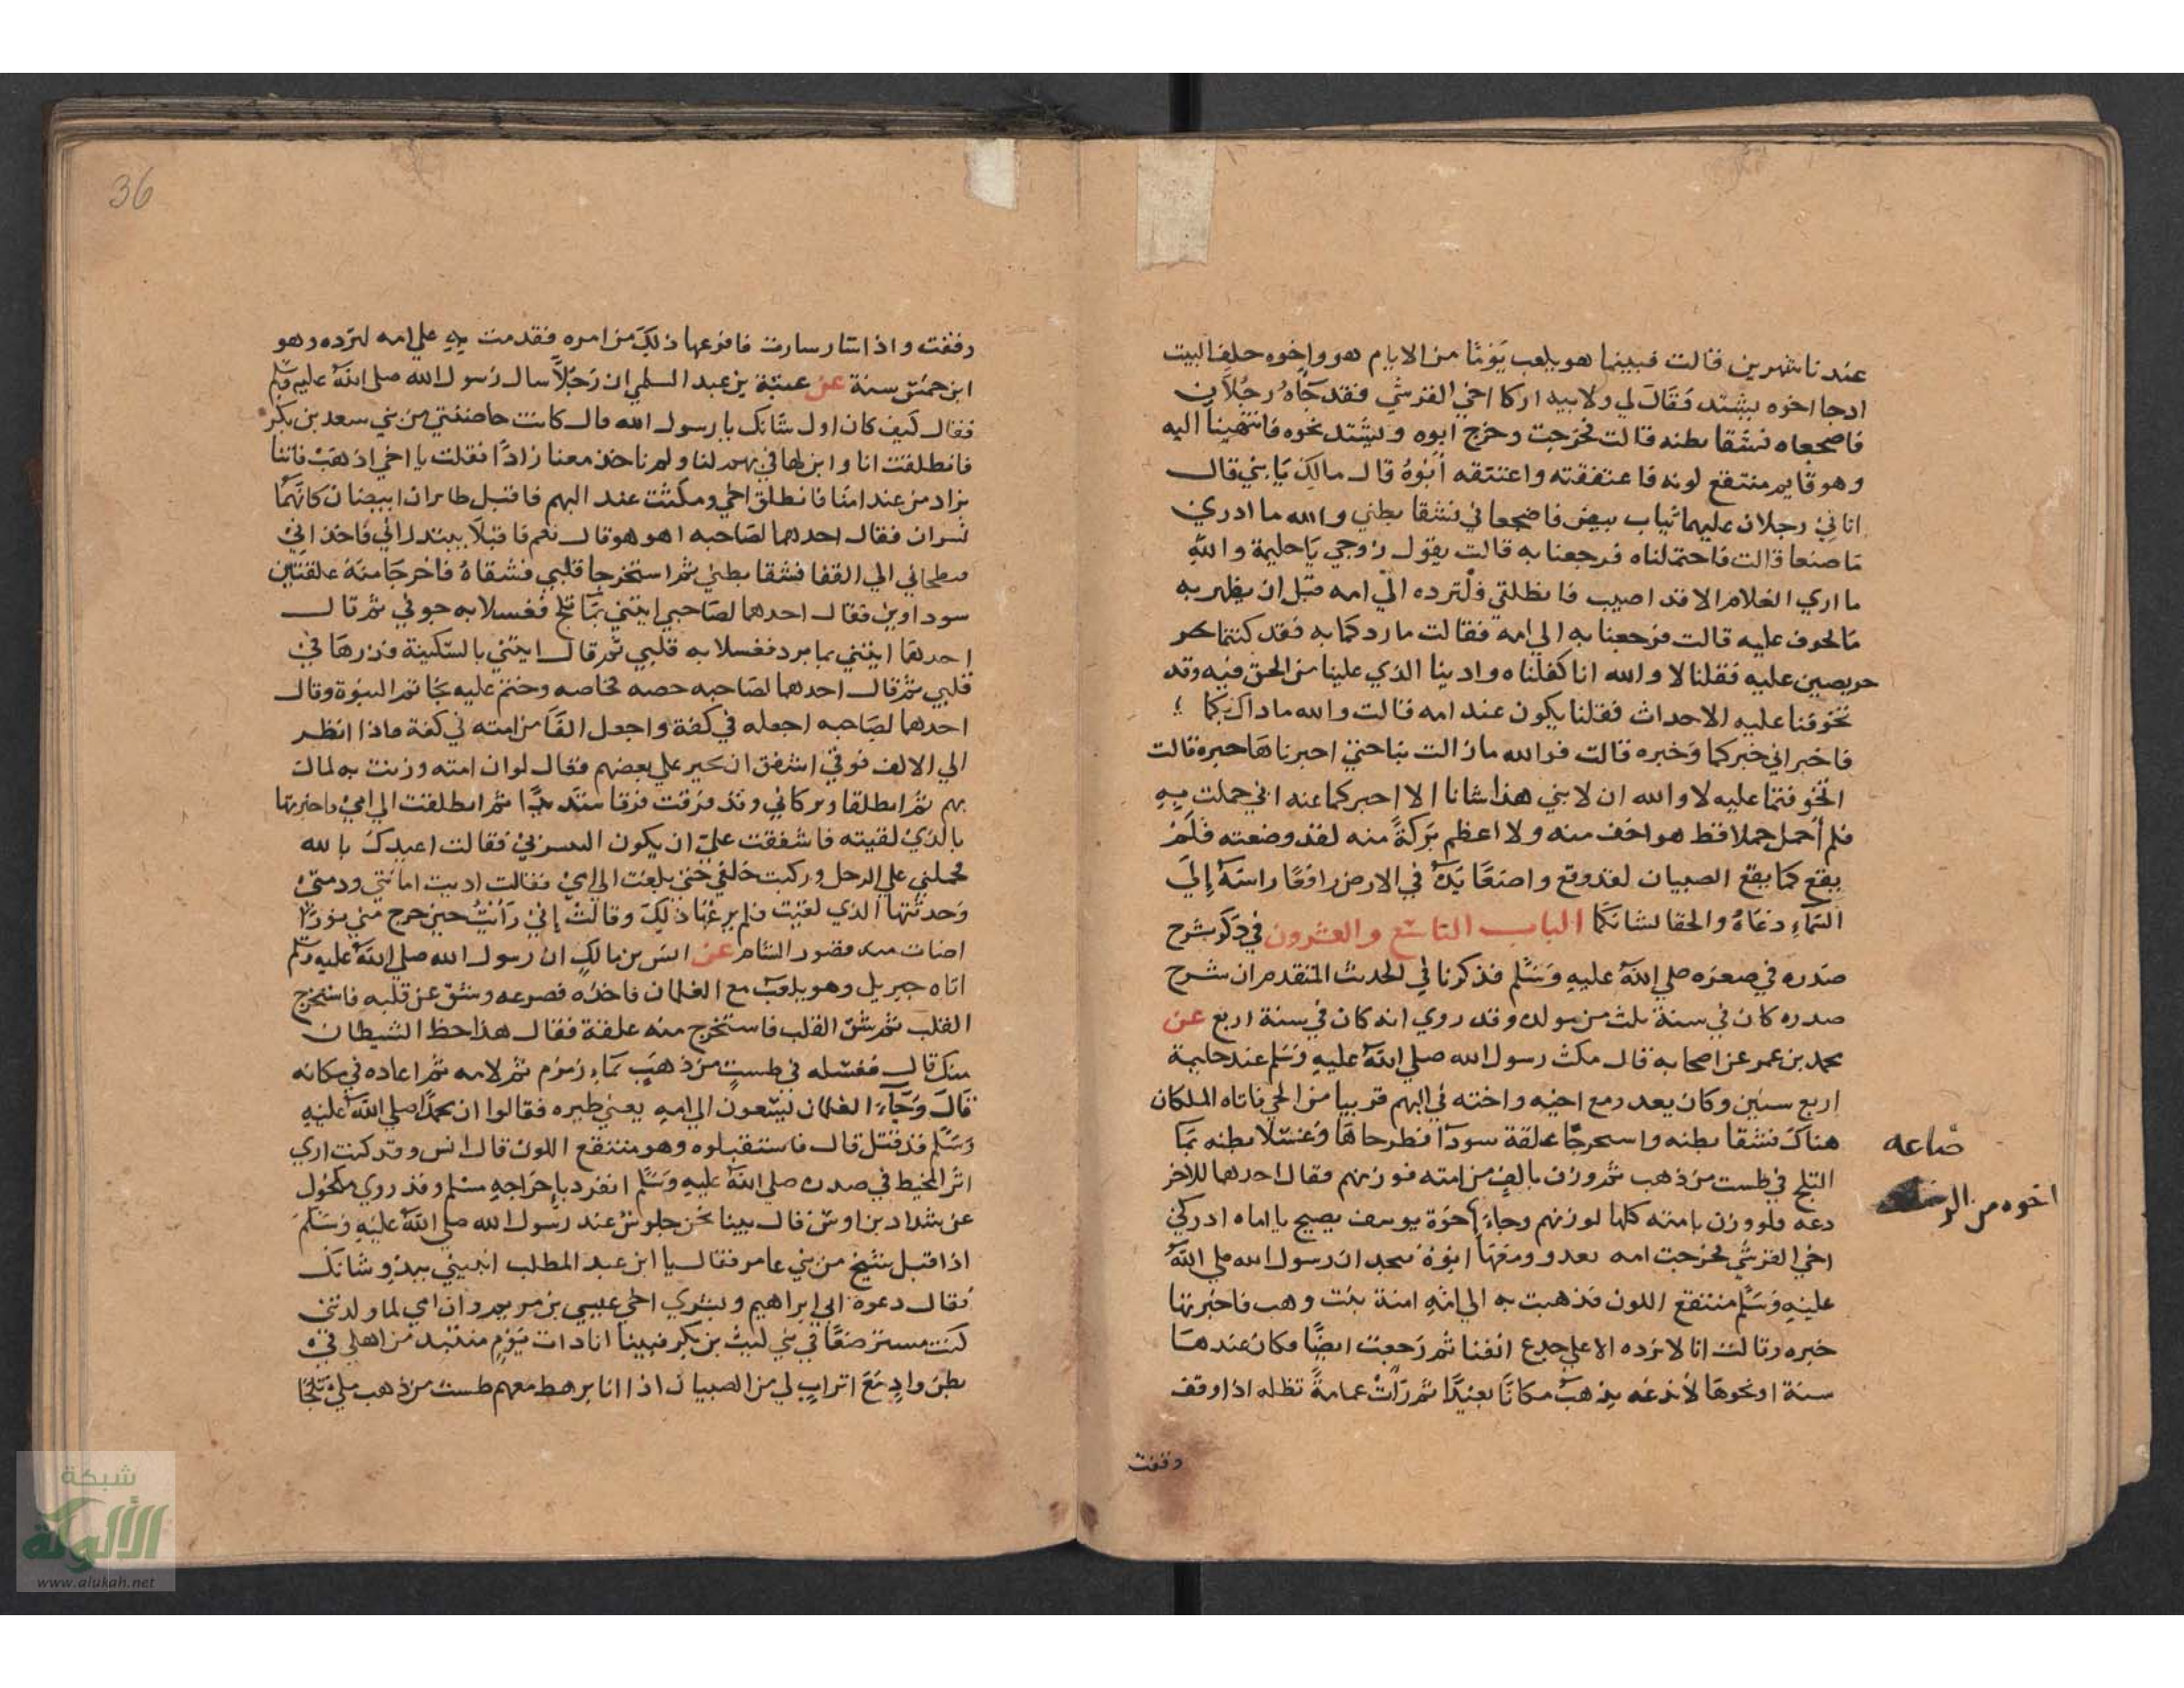 عندنا شهرين قالت فبينما هو يلعب يوما من الايام هو واخوه خلف البيت
اذ جا اخوه يشتد فقال لي ولابيه ادركا اخي القرشي فقد جاه رجلان
فاضجعاه فشقا بطنه قالت فخرجت وخرج ابوه ويشتد نحوه فانتهينا اليه
وهو قايم منتقع لونه فاعتنقته واعتنقه ابوه قال مالك يا بني قال
اتاني رجلان عليهما ثياب بيض فاضجعاني فشقا بطني والله ما ادري
ما صنعا قالت فاحتملناه فرجعنا به قالت يقول زوجي يا حليمة والله
ما اري الغلام الا قد اصيب فانطلقي فلنرده الي امه قبل ان يظهر به
ما نخوف عليه قالت فرجعنا به الي امه فقالت ما ردكما به فقد كنتما
حريصين عليه فقلنا لا والله انا كفلناه وادينا الذي علينا من الحق فيه وقد
تخوفنا عليه الاحداث فقلنا يكون عند امه قالت والله ما ذاك بكما
فاخبراني خبركما وخبره قالت فوالله ما زالت بنا حتي اخبرناها خبره قالت
اتخوفتما عليه لا والله ان لابني هذا شانا الا اخبركما عنه اني حملت به
فلم احمل حملا قط هو اخف منه ولا اعظم بركة منه لقد وضعته فلم
يقع كما يقع الصبيان لقد وقع واضعا يده في الارض رافعا راسه الي
السماء دعاه والحقا لشانكما الباب التاسع والعشرون في ذكر شرح
صدره في صغره صلي الله عليه وسلم قد ذكرنا في الحديث المتقدم ان شرح
صدره كان في سنة ثلث من مولده وقد روي انه كان في سنة اربع عن
محمد بن عمر عن اصحابه قال مكث رسول الله صلي الله عليه وسلم عند حليمة
اربع سنين وكان يعدو مع اخيه واخته في البهم قريبا من الحي فاتاه الملكان
هناك فشقا بطنه واستخرجا علقة سودا فطرحاها وغسلا بطنه بما
الثلج في طست من ذهب ثم وزن بالف من امته فوزنهم فقال احدهما للاخر
دعه فلو وزن بامته كلها لوزنهم وجاء اخوه يصيح يا اماه ادركي
اخي القرشي فخرجت امه تعدو ومعها ابوه فيجدان رسول الله صلي الله
عليه وسلم منتقع اللون فذهبت به الي امه امنة بنت وهب فاخبرتها
خبره وقالت انا لا نرده الا علي جدع انفنا ثم رجعت ايضا فكان عندها
سنة او نحوها لا تدعه يذهب مكانا بعيدا ثم رات غمامة تظله اذا وقف
وقفت
ضاعه
اخوه من الر
36
وقفت واذا سار سارت فافزعها ذلك من امره فقدمت به علي امه لترده وهو
ابن خمس سنة عن عتبة بن عبد السلمي ان رجلا سال رسول الله صلي الله عليه وسلم
فقال كيف كان اول شانك يا رسول الله قال كانت حاضنتي من بني سعد بن بكر
فانطلقت انا وابن لها في بهم لنا ولم ناخذ معنا زادا فقلت يا اخي اذهب فاتنا
بزاد من عند امنا فانطلق اخي ومكثت عند البهم فاقبل طايران ابيضان كانهما
نسران فقال احدهما لصاحبه اهو هو قال نعم فاقبلا يبتدراني فاخذاني
فبطحاني الي القفا فشقا بطني ثم استخرجا قلبي فشقاه فاخرجا منه علقتين
سوداوين فقال احدهما لصاحبي ايتني بما ثلج فغسلا به جوفي ثم قال
احدهما ايتني بما برد فغسلا به قلبي ثم قال ايتني بالسكينة فذرها في
قلبي ثم قال احدهما لصاحبه حصه فحاصه وختم عليه بخاتم النبوة وقال
احدهما لصاحبه اجعله في كفة واجعل الفا من امته في كفة فاذا انظر
الي الالف فوقي اشفق ان يخر علي بعضهم فقال لو ان امته وزنت به لمال
بهم ثم انطلقا وتركاني وقد فرقت فرقا شديدا ثم انطلقت الي امي فاخبرتها
بالذي لقيته فاشفقت علي ان يكون التبس بي فقالت اعيذك بالله
فحملتني علي الرحل وركبت خلفي حتي بلغت الي امي فقالت اديت امانتي وذمتي
وحدثتها الذي لقيت فلم يرعها ذلك وقالت اني رايت حين خرج مني نورا
اضات منه قصور الشام عن انس بن مالك ان رسول الله صلي الله عليه وسلم
اتاه جبريل وهو يلعب مع الغلمان فاخذه فصرعه وشق عن قلبه فاستخرج
القلب ثم شق القلب فاستخرج منه علقة فقال هذا حظ الشيطان
منك قال فغسله في طست من ذهب بماء زمزم ثم لامه ثم اعاده في مكانه
قال وجاء الغلمان يسعون الي امه يعني ظيره فقالوا ان محمدا صلي الله عليه
وسلم قد قتل قال فاستقبلوه وهو منتقع اللون قال انس وقد كنت اري
اثر المخيط في صدره صلي الله عليه وسلم انفرد باخراجه مسلم وقد روي مكحول
عن شداد بن اوس قال بينا نحن جلوس عند رسول الله صلي الله عليه وسلم
اذ اقبل شيخ من بني عامر فقال يا ابن عبد المطلب انبيني ببدو شانك
فقال دعوة ابي ابراهيم وبشري اخي عيسي بن مريم وان امي لما ولدتني
كنت مسترضعا في بني ليث بن بكر فبينا انا ذات يوم منتبذ من اهلي في
بطن واد مع اتراب لي من الصبيان اذا انا برهط معهم طست من ذهب ملئ ثلجا
شبكة
الألوكة
www.alukah.net